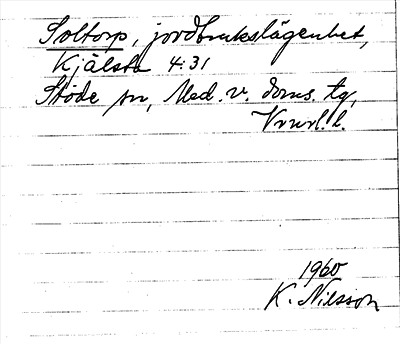 Soltorp, jordbrukslägenhet,
Kjälsta 4:31
Stöde sn, Med. v. doms. tg,
Vnorl. l.
1960
K. Nilsson